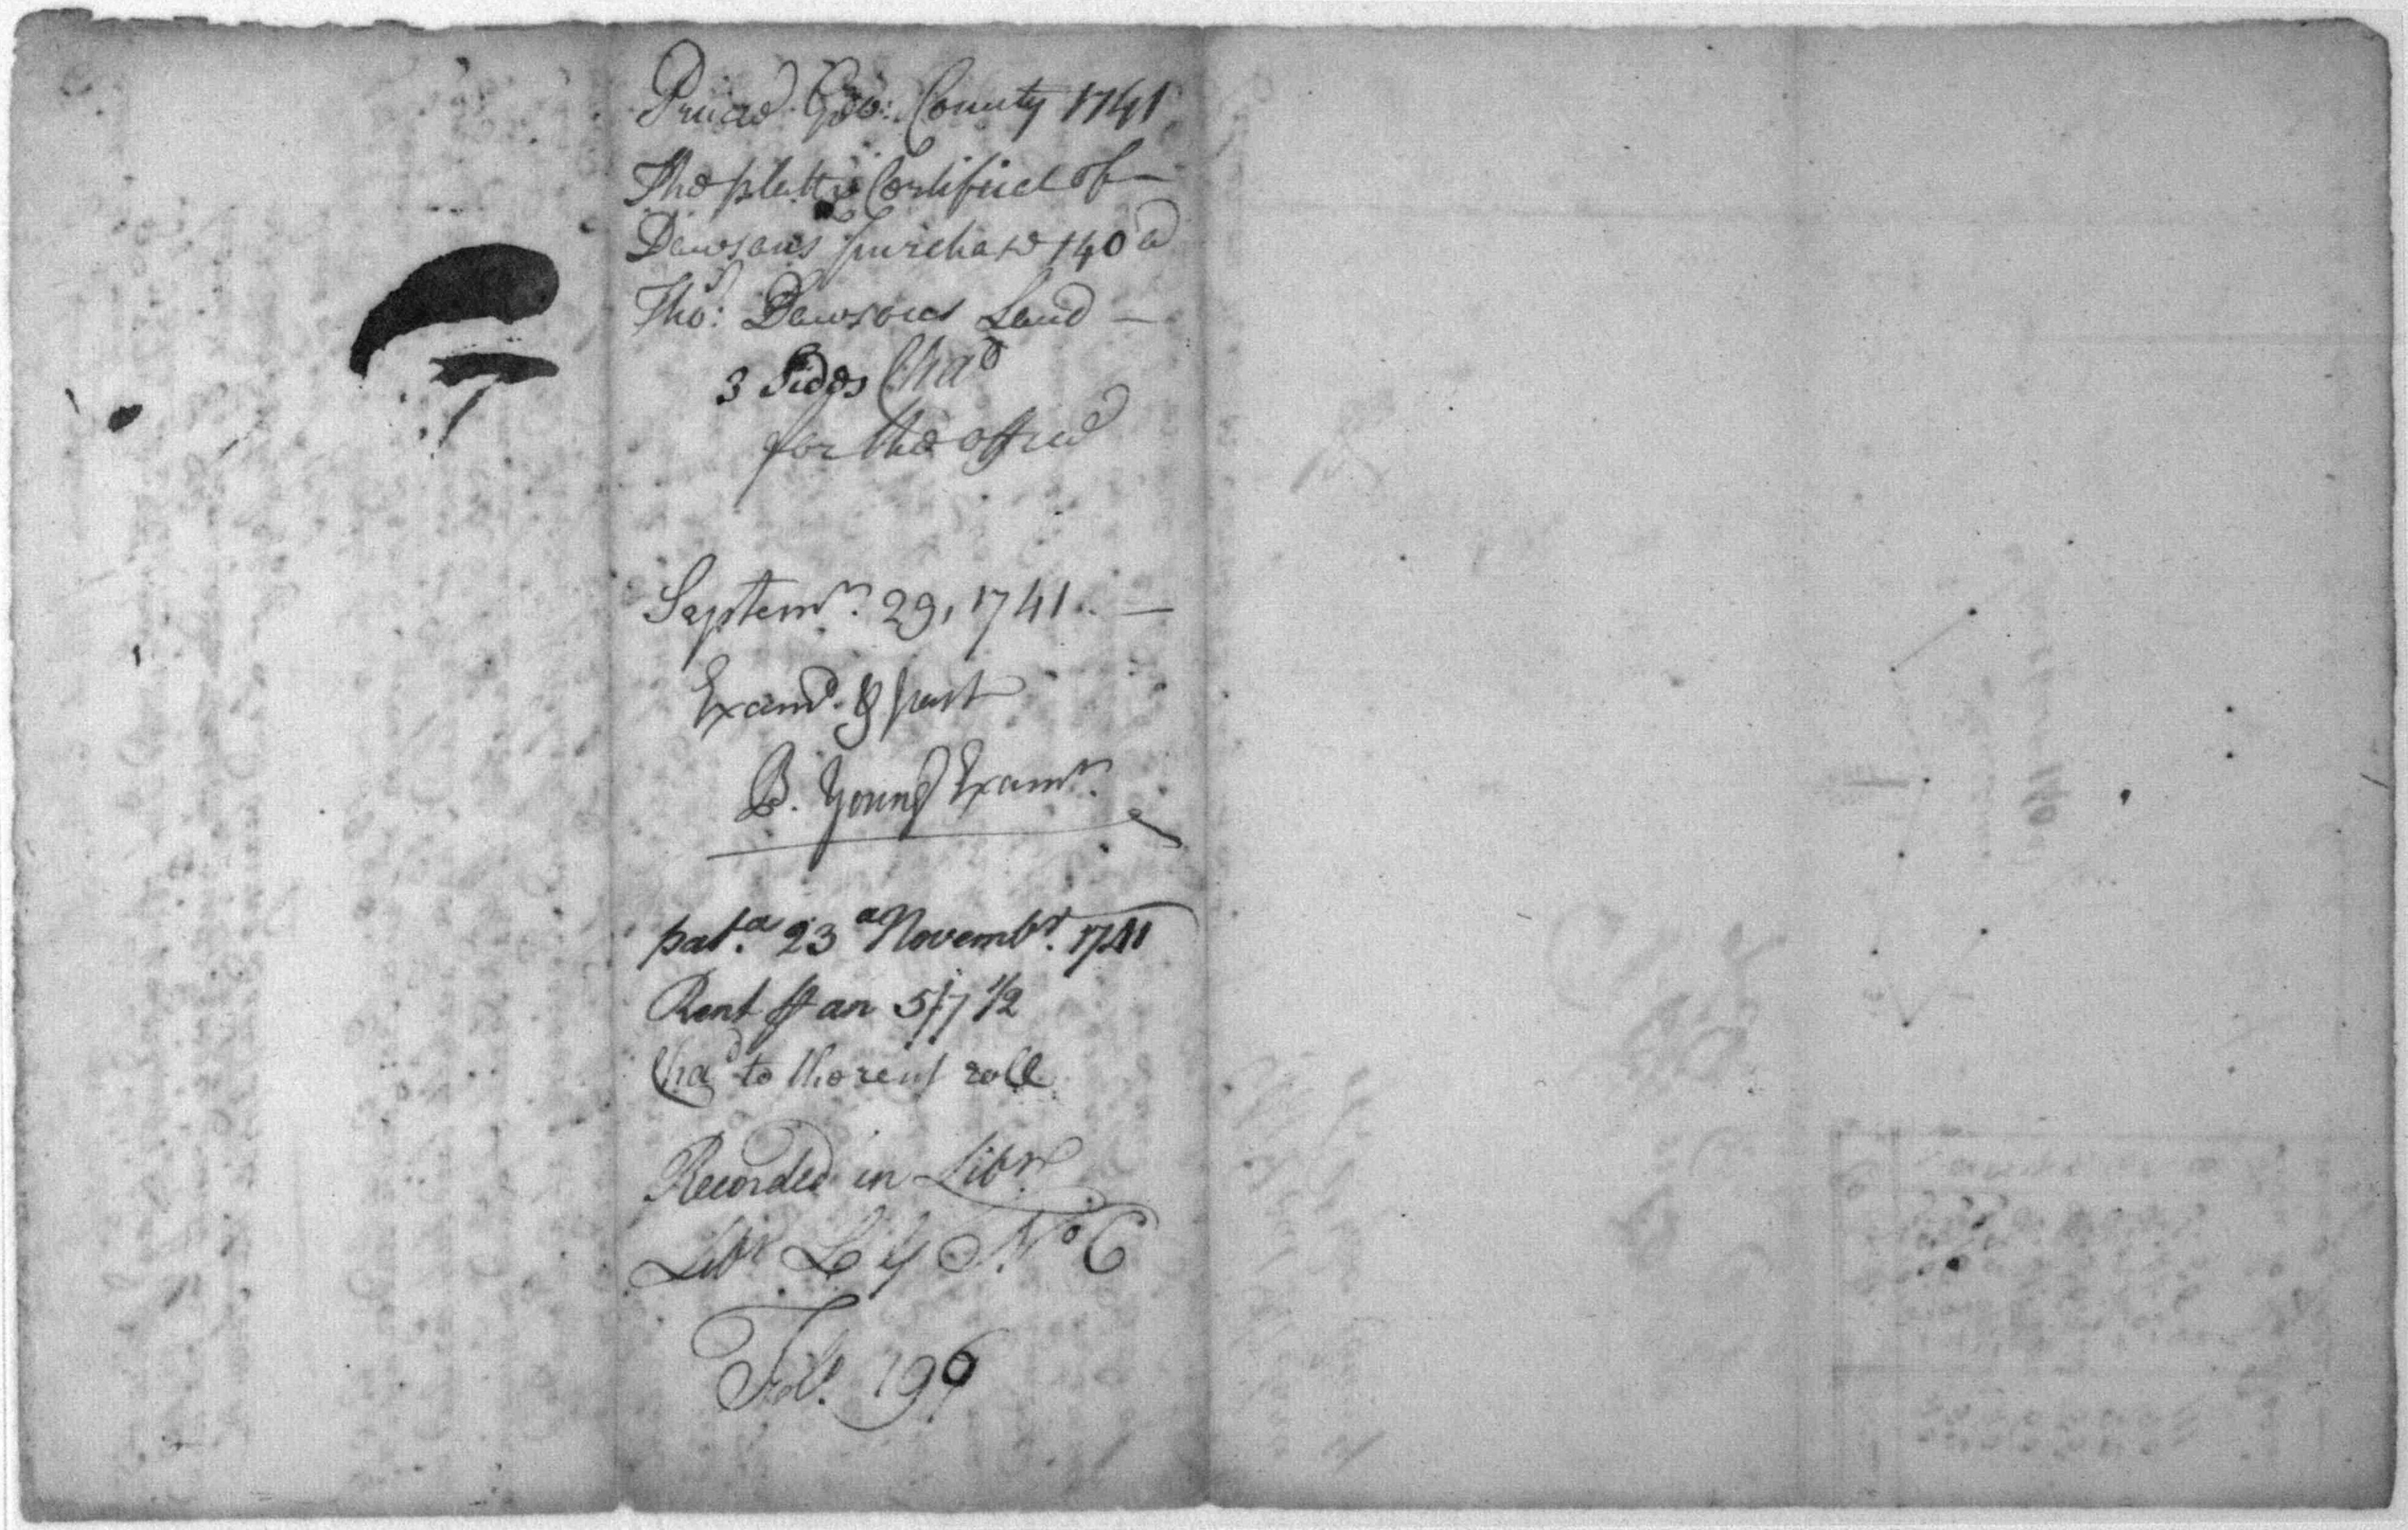 Prince Geo: County 1741
The platt & Certificet of —
Dawsons purchase 140 a
Tho.s Dawsons Land —
3 Sides Cha.d
for the office
Septem.r 29, 1741. —
Exam.d & past
B. Young Exam.r
pat.d 23.d Novemb.r 1741
Rent ⅌ an 5/7 1/2
Cha.d to the rent roll
Recorded in Libr
Libr L G No C
Fol. 196